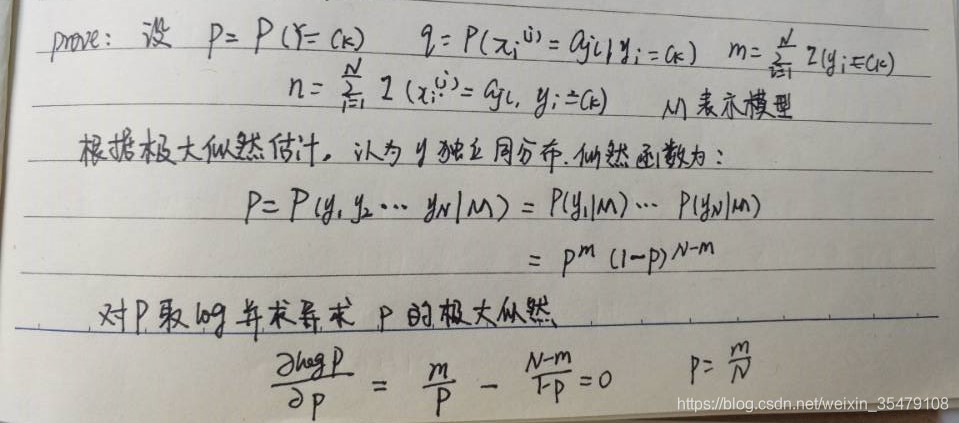 prove: 设 P = P(Y=Ck) q = P(xi^(j) = ajl, yi = Ck) m = Σ_{i=1}^{N} I(yi = Ck)
n = Σ_{i=1}^{N} I(xi^(j) = ajl, yi = Ck) M 表示模型
根据极大似然估计,认为 y 独立同分布.似然函数为:
P = P(y1 y2 ··· yN|M) = P(y1|M) ··· P(yN|M)
= p^m (1-p)^(N-m)
对 P 取 log 并求导求 p 的极大似然
∂logP/∂p = m/p - (N-m)/(1-p) = 0 p = m/N
https://blog.csdn.net/weixin_35479108